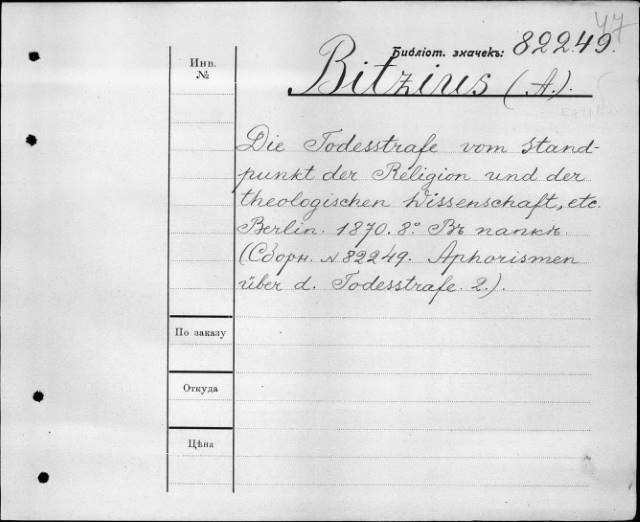 47
Библіот. значекъ: 82249.
Инв.
№
Bitzius (A.).
Die Todesstrafe vom Stand-
punkt der Religion und der
theologischen Wissenschaft, etc.
Berlin. 1870. 8º. Въ папкѣ.
(Сборн. № 82249. Aphorismen
über d. Todesstrafe. 2.).
По заказу
Откуда
Цѣна